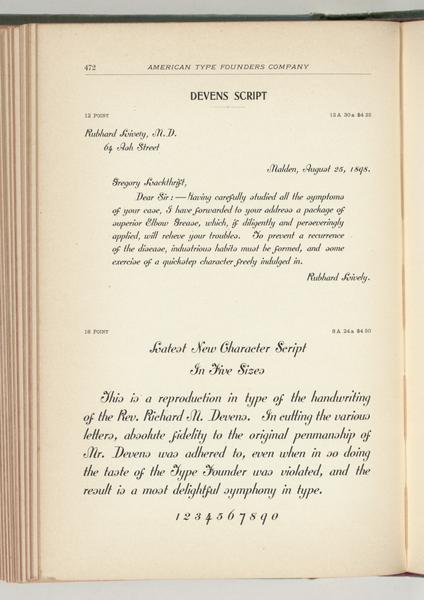 472
AMERICAN TYPE FOUNDERS COMPANY
DEVENS SCRIPT
12 POINT
12 A 30 a $4 25
Rubhard Livety, M. D.
64 Ash Street
Malden, August 25, 1898.
Gregory Lackthrift,
Dear Sir: — Having carefully studied all the symptoms
of your case, I have forwarded to your address a package of
superior Elbow Grease, which, if diligently and perseveringly
applied, will relieve your troubles. To prevent a recurrence
of the disease, industrious habits must be formed, and some
exercise of a quickstep character freely indulged in.
Rubhard Lively.
18 POINT
8 A 24 a $4 50
Latest New Character Script
In Five Sizes
This is a reproduction in type of the handwriting
of the Rev. Richard M. Devens. In cutting the various
letters, absolute fidelity to the original penmanship of
Mr. Devens was adhered to, even when in so doing
the taste of the Type Founder was violated, and the
result is a most delightful symphony in type.
1 2 3 4 5 6 7 8 9 0